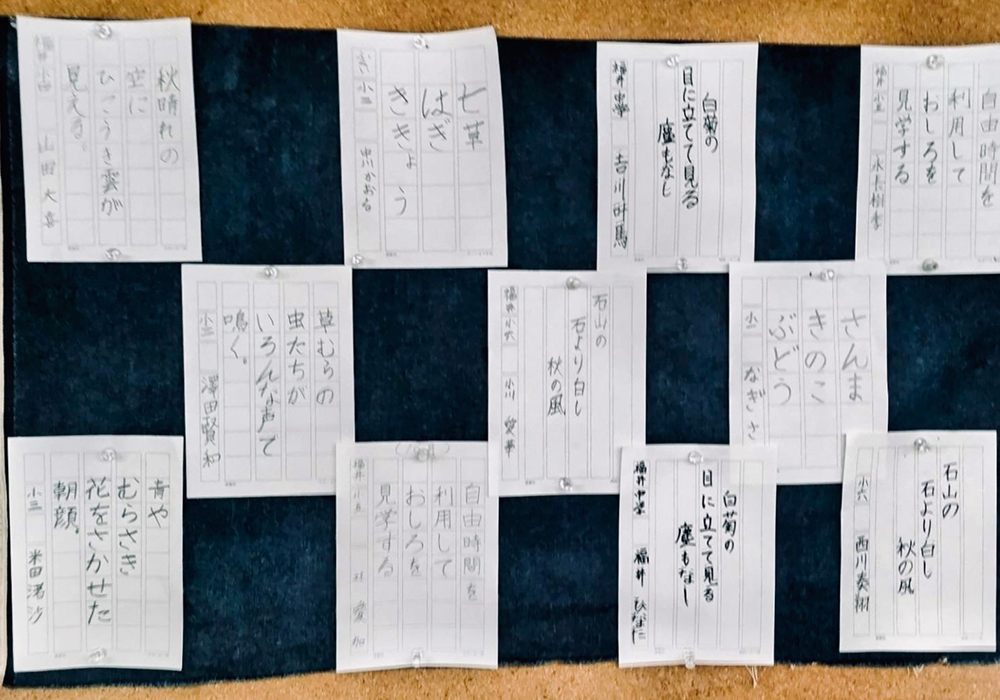 秋晴れの
空に
ひこうき雲が
見える。
山田大喜
七草
はぎ
ききょう
小三
中川かおる
白菊の
目に立てて見る
塵もなし
福井中学
吉川
自由時間を
利用して
おしろを
見学する
福井小五
草むらの
虫たちが
いろんな声で
鳴く。
小三
澤田賢和
石山の
石より白し
秋の風
福井小六
小川愛華
さんま
きのこ
ぶどう
小二
なぎさ
青や
むらさき
花をさかせた
朝顔。
小三
米田渚沙
自由時間を
利用して
おしろを
見学する
福井小五
白菊の
目に立てて見る
塵もなし
福井中学
福井ひなた
石山の
石より白し
秋の風
小六
西川奏翔